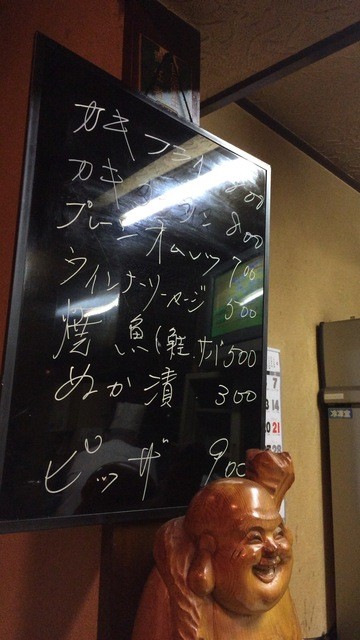 カキフライ 800
カキ 800
プレーンオムレツ 700
ウインナーソーセージ 500
焼魚(鮭.サバ) 500
ぬか漬 300
ピッザ 900
7
14
21
28
冷凍室